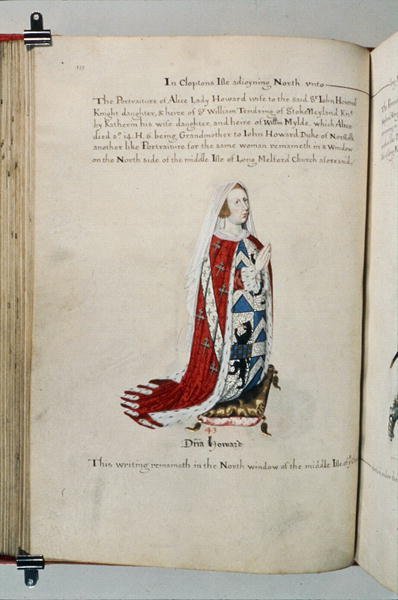 In Cloptons Isle adioyning North vnto
The Portraiture of Alice Lady Howard wife to the said Sr Iohn Howard
Knight daughter, & heire of Sr William Tendring of Stoke Neyland Knt.
by Katherin his wife daughter, and heire of Willm Mylde, which Alice
died ao. 14. H. 6. being Grandmother to Iohn Howard Duke of Norfolk
another like Portraiture for the same woman remaineth in a Window
on the North side of the middle Isle of Long Melford Church aforesaid.
43
Dna Howard
This writing remaineth in the North window of the middle Isle of